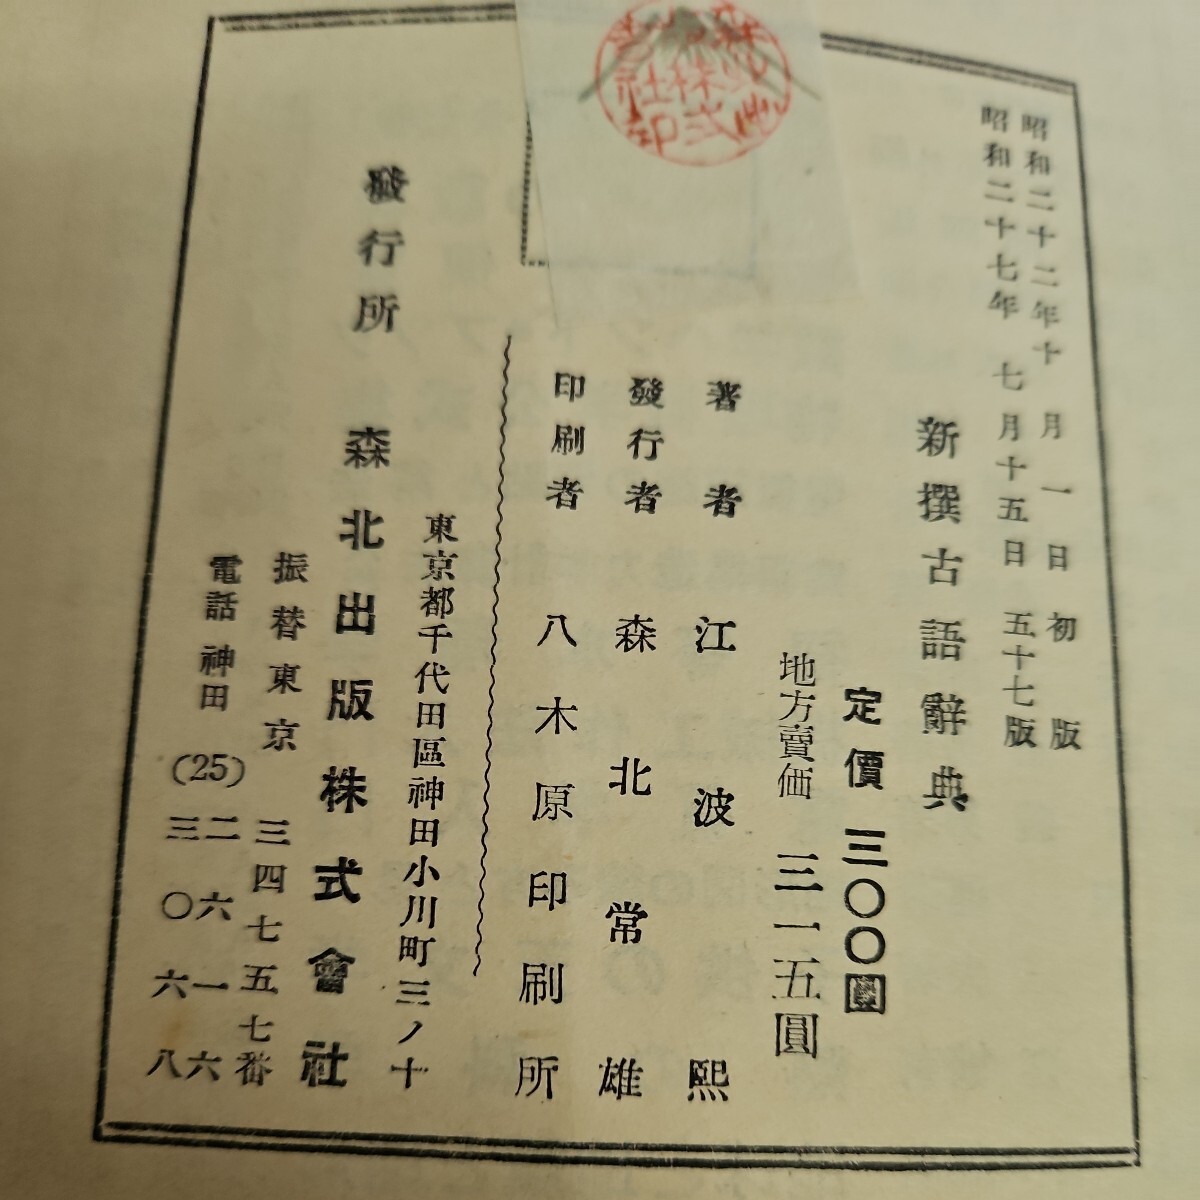 昭和二十二年十月一日初版
昭和二十七年七月十五日五十七版
新撰古語辭典
定價三〇〇圓
地方賣価三一五圓
著者江波熙
發行者森北常雄
印刷者八木原印刷所
東京都千代田區神田小川町三ノ十
發行所森北出版株式會社
振替東京三四七五七番
電話神田(25)二六一六
三〇六八